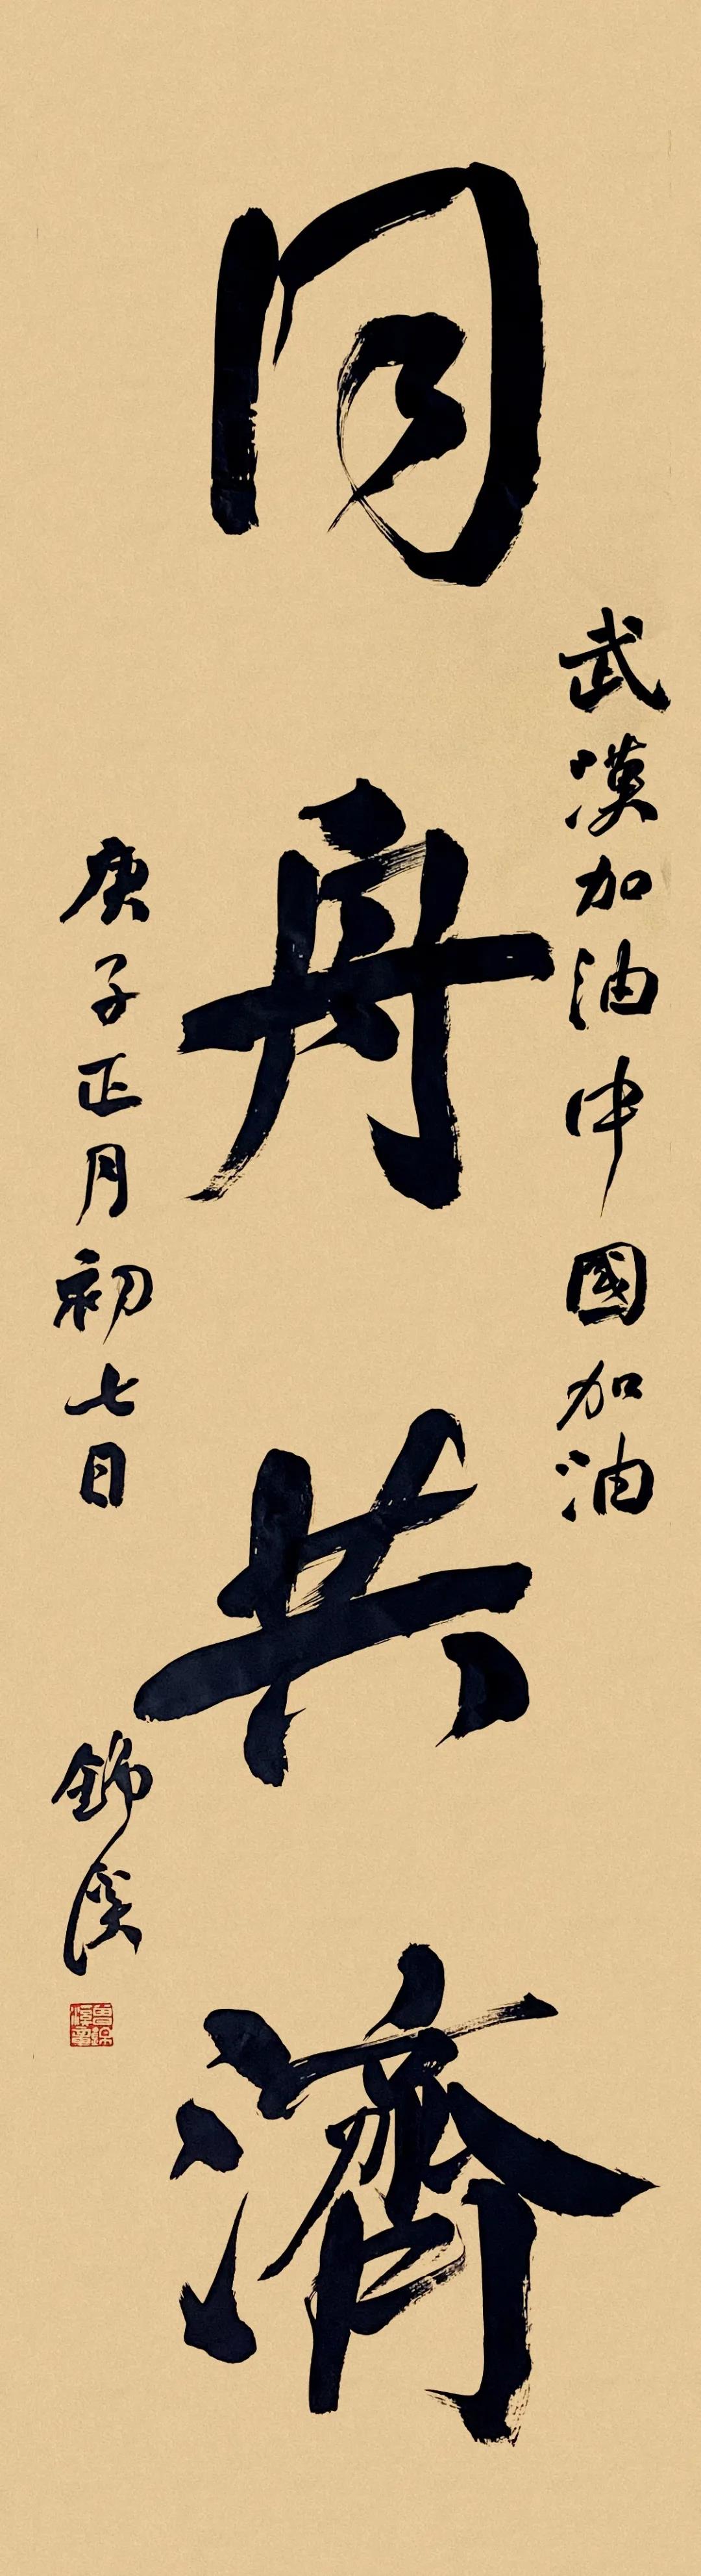 武漢加油中國加油
同舟共濟
庚子正月初七日
錦溪